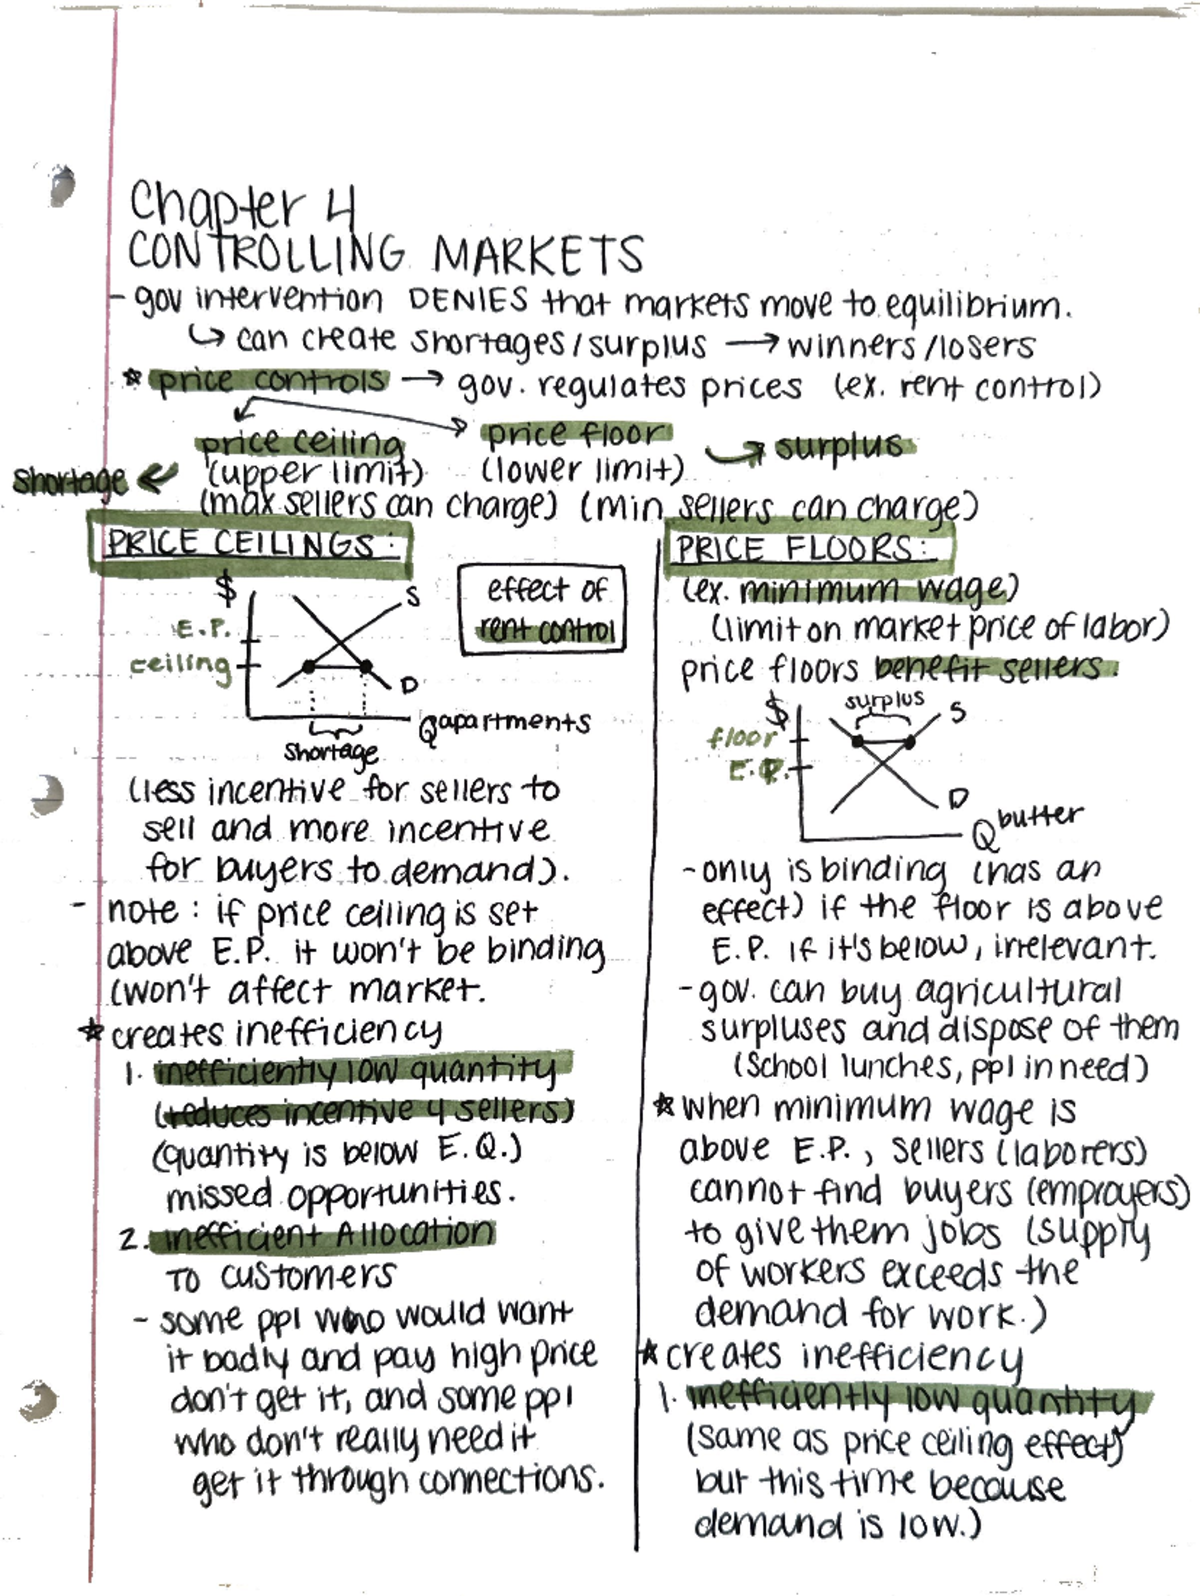 Chapter 4
CONTROLLING MARKETS
- gov intervention DENIES that markets move to equilibrium.
↳ can create shortages/surplus → winners/losers
* price controls → gov. regulates prices (ex. rent control)
price ceiling
price floor
↪ surplus
shortage ←
(upper limit)
(lower limit)
(max sellers can charge) (min sellers can charge)
PRICE CEILINGS:
$
S
E.P.
ceiling
D
Q apartments
shortage
effect of
rent control
(less incentive for sellers to
sell and more incentive
for buyers to demand).
- note: if price ceiling is set
above E.P. it won't be binding
(won't affect market.
* creates inefficiency
1. inefficiently low quantity
(reduces incentive 4 sellers)
(quantity is below E.Q.)
missed opportunities.
2. inefficient Allocation
TO customers
- some ppl who would want
it badly and pay high price
don't get it, and some ppl
who don't really need it
get it through connections.
PRICE FLOORS:
(ex. minimum wage)
(limit on market price of labor)
price floors benefit sellers.
$
surplus
S
floor
E.P.
D
Q butter
- only is binding (has an
effect) if the floor is above
E.P. if it's below, irrelevant.
- gov. can buy agricultural
surpluses and dispose of them
(school lunches, ppl in need)
* when minimum wage is
above E.P., sellers (laborers)
cannot find buyers (employers)
to give them jobs (supply
of workers exceeds the
demand for work.)
* creates inefficiency
1. inefficiently low quantity
(same as price ceiling effect)
but this time because
demand is low.)